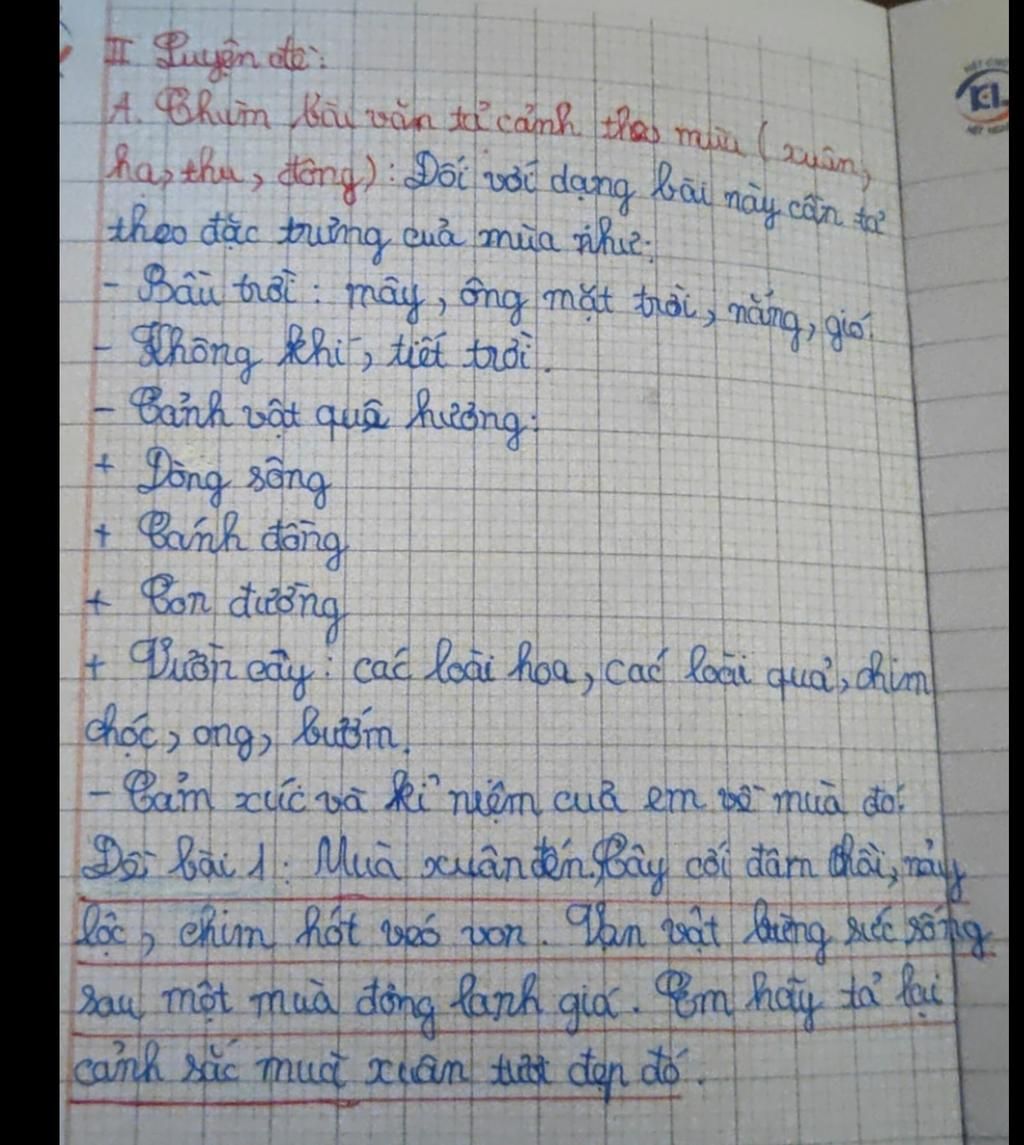 II Luyện đề:
A. Chùm bài văn tả cảnh theo mùa (xuân,
hạ, thu, đông): Đối với dạng bài này cần tả
theo đặc trưng của mùa như:
- Bầu trời: mây, ông mặt trời, nắng, gió.
- Không khí, tiết trời.
- Cảnh vật quê hương:
+ Dòng sông
+ Cánh đồng
+ Con đường
+ Vườn cây: các loài hoa, các loài quả, chim
chóc, ong, bướm.
- Cảm xúc và kỉ niệm của em về mùa đó.
Đề bài 1: Mùa xuân đến. Cây cối đâm chồi, nảy
lộc, chim hót véo von. Vạn vật bừng sức sống
sau một mùa đông lạnh giá. Em hãy tả lại
cảnh sắc mùa xuân tươi đẹp đó.